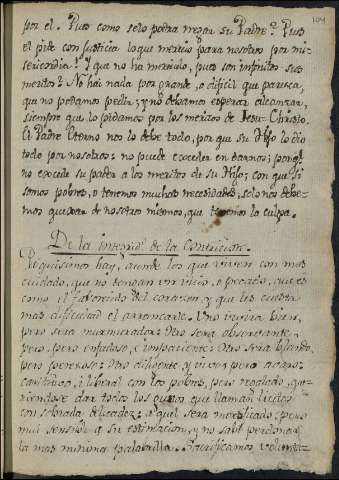 104
por el. Pues como selo podra negar su Padre? Pues
el pide con Justicia lo que merecio para nosotros por mi-
sericordia? Y que no ha merecido, pues son infinitos sus
meritos? No hai nada por grande, o dificil que parezca,
que no podamos pedir; y no debamos esperar alcanzar,
siempre que lo pidamos por los meritos de Jesu-Christo.
El Padre Eterno nos lo debe todo, por que su Hijo lo dio
todo por nosotros: no puede exceder en darnos; porq.e
no excede su poder a los meritos de su Hijo; con que si
somos pobres, o tenemos muchas necesidades, solo nos debe-
mos quexar de nosotros mismos, que tenemos la culpa.
De la integrid.d de la Contricion.
Poquisimos hay, aunde los que viven con mas
cuidado, que no tengan un vicio, o pecado, que es
como el favorecido del corazon, y que les cuesta
mas dificultad el arrancarle. Uno vivira bien,
pero sera murmurador: Otro sera observante,
pero enfadoso, e impaciente: Otro sera blando,
pero perezoso: Otro diligente, y vivo; pero avaro:
caritativo, i liberal con los pobres, pero regalado, que-
riendose dar todos los gustos que llaman licitos
con sobrada delicadez: aquel sera mortificado; pero
mui sensible a su estimacion, y no sabe perdonar
la mas minima palabrilla. Sacrificamos volunta-